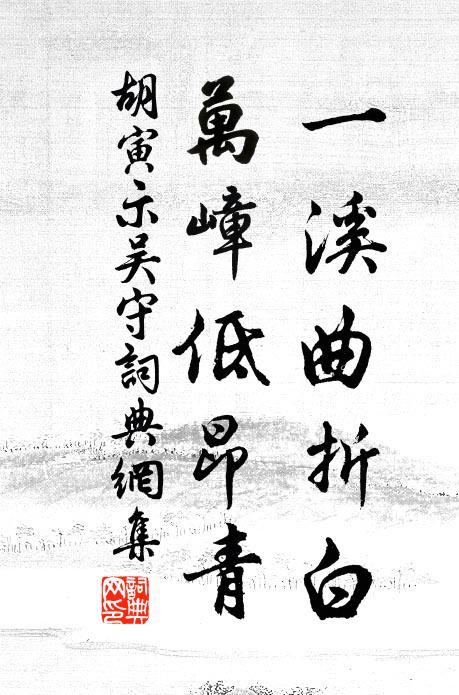 一溪曲折白
萬嶂低昂青
胡寅示吴守詞典網集
詞典网印